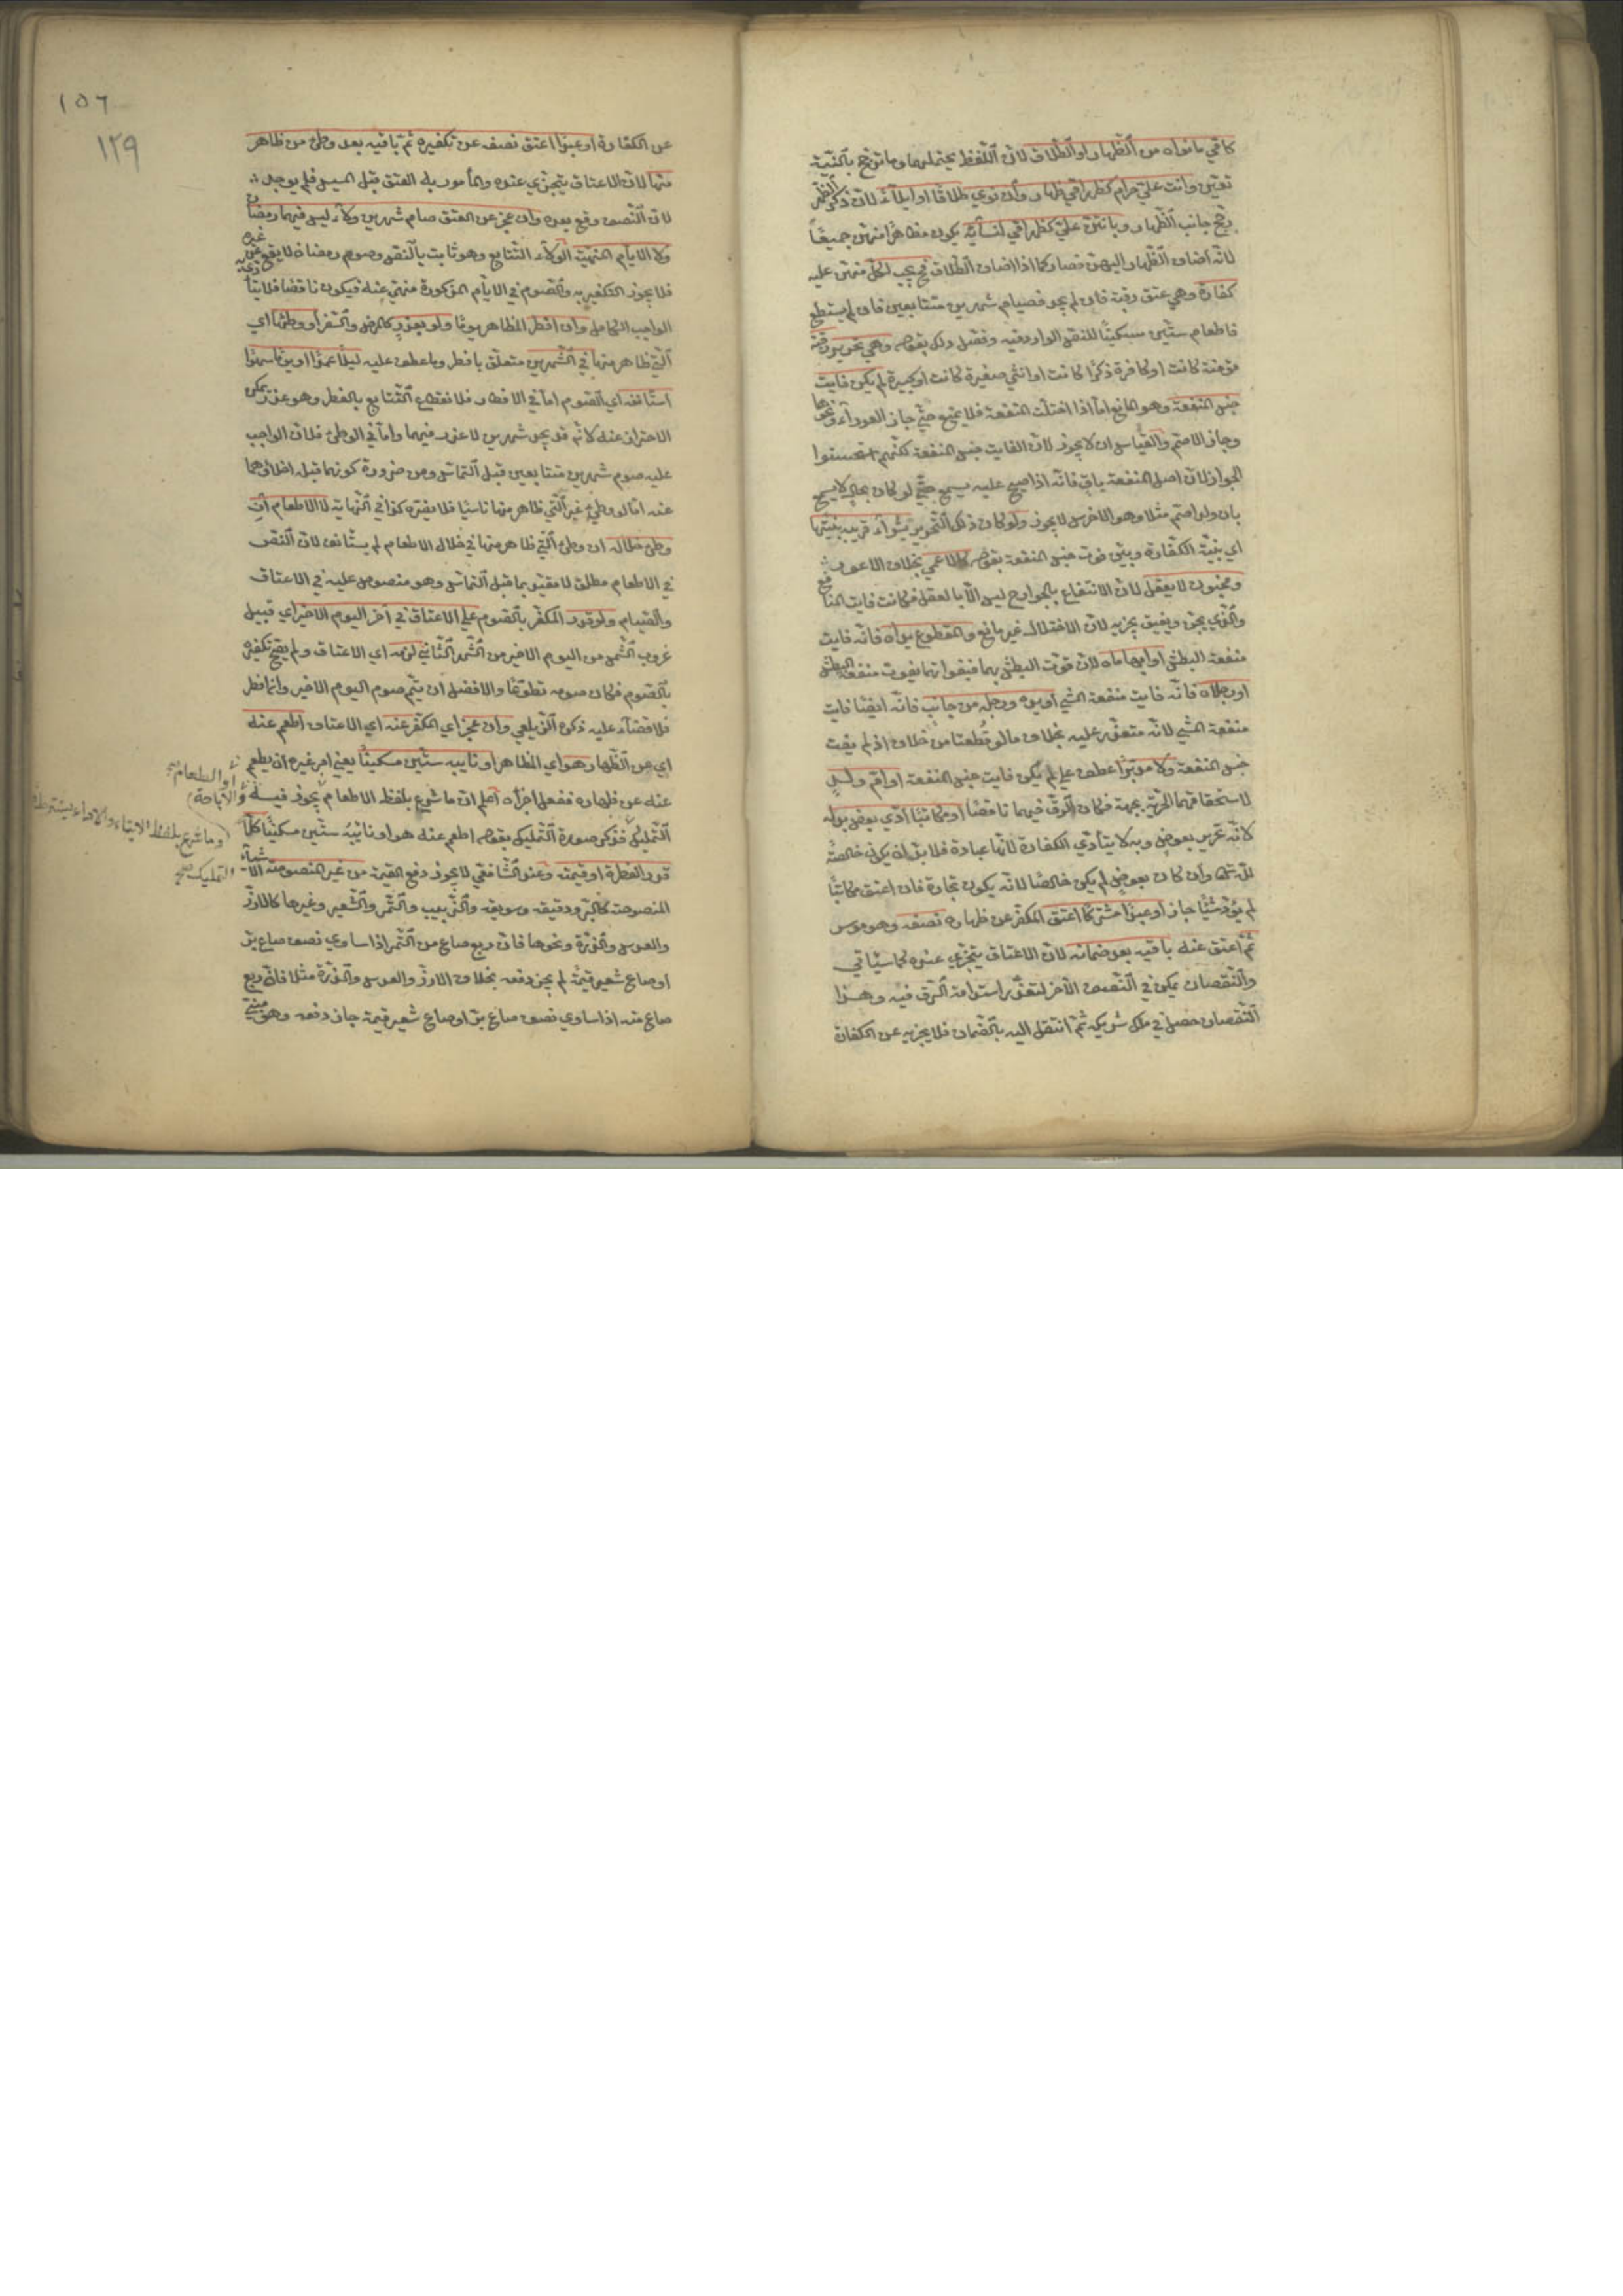 كأمي ما نواه من الظهار او الطلاق لان اللفظ يحتملهما وما ترجح بالنية
تعين وانت علي حرام كظهر امي ظهار وان نوي طلاقا او ايلاء لان ذكر الظهر
رجح جانب الظهار وبانتن علي كظهر امي لنسائه يكون مظاهرا منهن جميعا
لانه اضاف الظهار اليهن فصار كما اذا اضاف الطلاق فيجب لكل منهن عليه
كفارة وهي عتق رقبة فان لم يجد فصيام شهرين متتابعين فان لم يستطع
فاطعام ستين مسكينا للنص الوارد فيه وفصل ذلك بقوله وهي تحرير رقبة
مؤمنة كانت او كافرة ذكرا كانت او انثي صغيرة كانت او كبيرة لم يكن فايت
جنس المنفعة وهو المانع اما اذا اختلت المنفعة فلا يمنع حتي جاز العوراء ونحوها
وجاز الاصم والقياس ان لا يجوز لان الفايت جنس المنفعة لكنهم استحسنوا
الجواز لان اصل المنفعة باق فانه اذا صيح عليه يسمع حتي لو كان بحال لا يسمع
بان ولد اصم مثلا وهو الاخرس لا يجوز ولو كان ذلك التحرير بشراء قريبه بنيتها
اي بنية الكفارة وبين فوت جنس المنفعة بقوله كالاعمي بخلاف الاعور
ومجنون لا يعقل لان الانتفاع بالجوارح ليس الا بالعقل فكانت فايت المنافع
والذي يجن ويفيق يجزيه لان الاختلال غير مانع والمقطوع يداه فانه فايت
منفعة البطش او ابهاماه لان قوت البطش بهما فبفواتهما يفوت منفعة البطش
او رجلاه فانه فايت منفعة المشي او يده ورجله من جانب فانه ايضا فايت
منفعة المشي لانه متعذر عليه بخلاف ما لو قطعتا من خلاف اذ لم يفت
جنس المنفعة ولا مدبرا عطف علي لم يكن فايت جنس المنفعة او ام ولد
لاستحقاقهما الحرية بجهة فكان الرق فيهما ناقصا او مكاتبا ادي بعض بدله
لانه تحرير بعوض وبه لا يتأدي الكفارة لانها عبادة فلا بد ان يكون خالصة
لله تعالى وان كان بعوض لم يكن خالصا لانه يكون تجارة فان اعتق مكاتبا
لم يؤد شيئا جاز او عبدا مشتركا اعتق المكفر عن ظهاره نصفه وهو موسر
ثم اعتق عنه باقيه بعد ضمانه لان الاعتاق يتجزي عنده كما سيأتي
والنقصان تمكن في النصف الآخر لتعذر استدامة الرق فيه وهذا
النقصان حصل في ملك شريكه ثم انتقل اليه بالضمان فلا يجزيه عن الكفارة
١٥٦
١٢٩
عن الكفارة او عبدا اعتق نصفه عن تكفيره ثم باقيه بعد وطئ من ظاهر
منها لان الاعتاق يتجزي عنده والمأمور به العتق قبل المسيس فلم يوجد
لان النصف وقع بعده وان عجز عن العتق صام شهرين ولاء ليس فيهما رمضان
ولا الايام المنهية الولاء التتابع وهو ثابت بالنص وصوم رمضان لا يقع عن غيره
فلا يجوز التكفير به والصوم في الايام المذكورة منهي عنه فيكون ناقصا فلا يتأدي به
الواجب الكامل وان افطر المظاهر يوما ولو بعذر كالمرض والسفر او وطئها اي
التي ظاهر منها في الشهرين متعلق بافطر وما عطف عليه ليلا عمدا او يوما سهوا
استأنفه اي الصوم اما في الافطار فلانقطاع التتابع بالفطر وهو عذر يمكن
الاحتراز عنه لانه قد يجد شهرين لا عذر فيهما واما في الوطئ فلان الواجب
عليه صوم شهرين متتابعين قبل التماس ومن ضرورة كونهما قبله اخلاؤهما
عنه اما لو وطئ غير التي ظاهر منها ناسيا فلا يضره كذا في النهاية لا الاطعام ان
وطئ خلاله ان وطئ التي ظاهر منها في خلال الاطعام لم يستأنف لان النص
في الاطعام مطلق لا مقيد بما قبل التماس وهو منصوص عليه في الاعتاق
والصيام ولو قدر المكفر بالصوم علي الاعتاق في آخر اليوم الاخير اي قبيل
غروب الشمس من اليوم الاخير من الشهر الثاني لزمه اي الاعتاق ولم يصح تكفيره
بالصوم فكان صومه تطوعا والافضل ان يتم صوم اليوم الاخير وان افطر
فلا قضاء عليه ذكره الزيلعي وان عجز اي المكفر عنه اي الاعتاق اطعم عنه
اي عن الظهار هو اي المظاهر او نايبه ستين مسكينا يعني امر غيره ان يطعم
عنه عن ظهاره ففعل اجزاه اعلم ان ما شرع بلفظ الاطعام يجوز فيه
أو الطعام صح
والاباحة
وما شرع بلفظ الايتاء والاداء يشترط فيه
التمليك صح
التمليك فذكر صورة التمليك بقوله اطعم عنه هو او نايبه ستين مسكينا كلا
قدر الفطرة او قيمته وعند الشافعي لا يجوز دفع القيمة من غير المنصوصة الاشياء
المنصوصة كالبر ودقيقه وسويقه والزبيب والتمر والشعير وغيرها كالارز
والعدس والذرة ونحوها فان ربع صاع من التمر اذا ساوي نصف صاع بر
او صاع شعير قيمة لم يجز دفعه بخلاف الارز والعدس والذرة مثلا فان ربع
صاع منه اذا ساوي نصف صاع بر او صاع شعير قيمة جاز دفعه وهو مبني